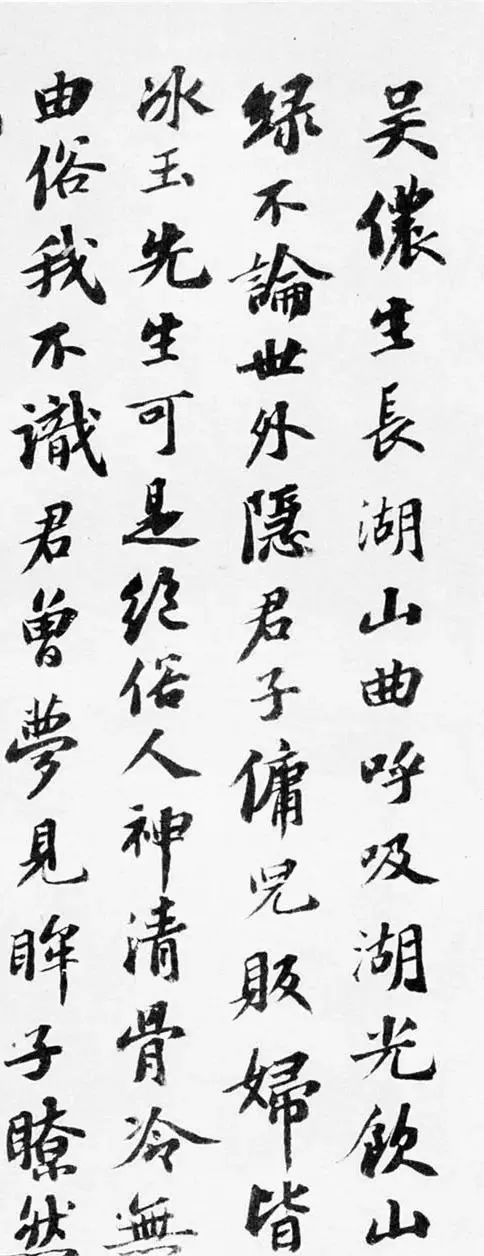 吴儂生長湖山曲呼吸湖光飲山
緑不論世外隠君子傭兒販婦皆
冰玉先生可是絶俗人神清骨冷無
由俗我不識君曾夢見眸子瞭然